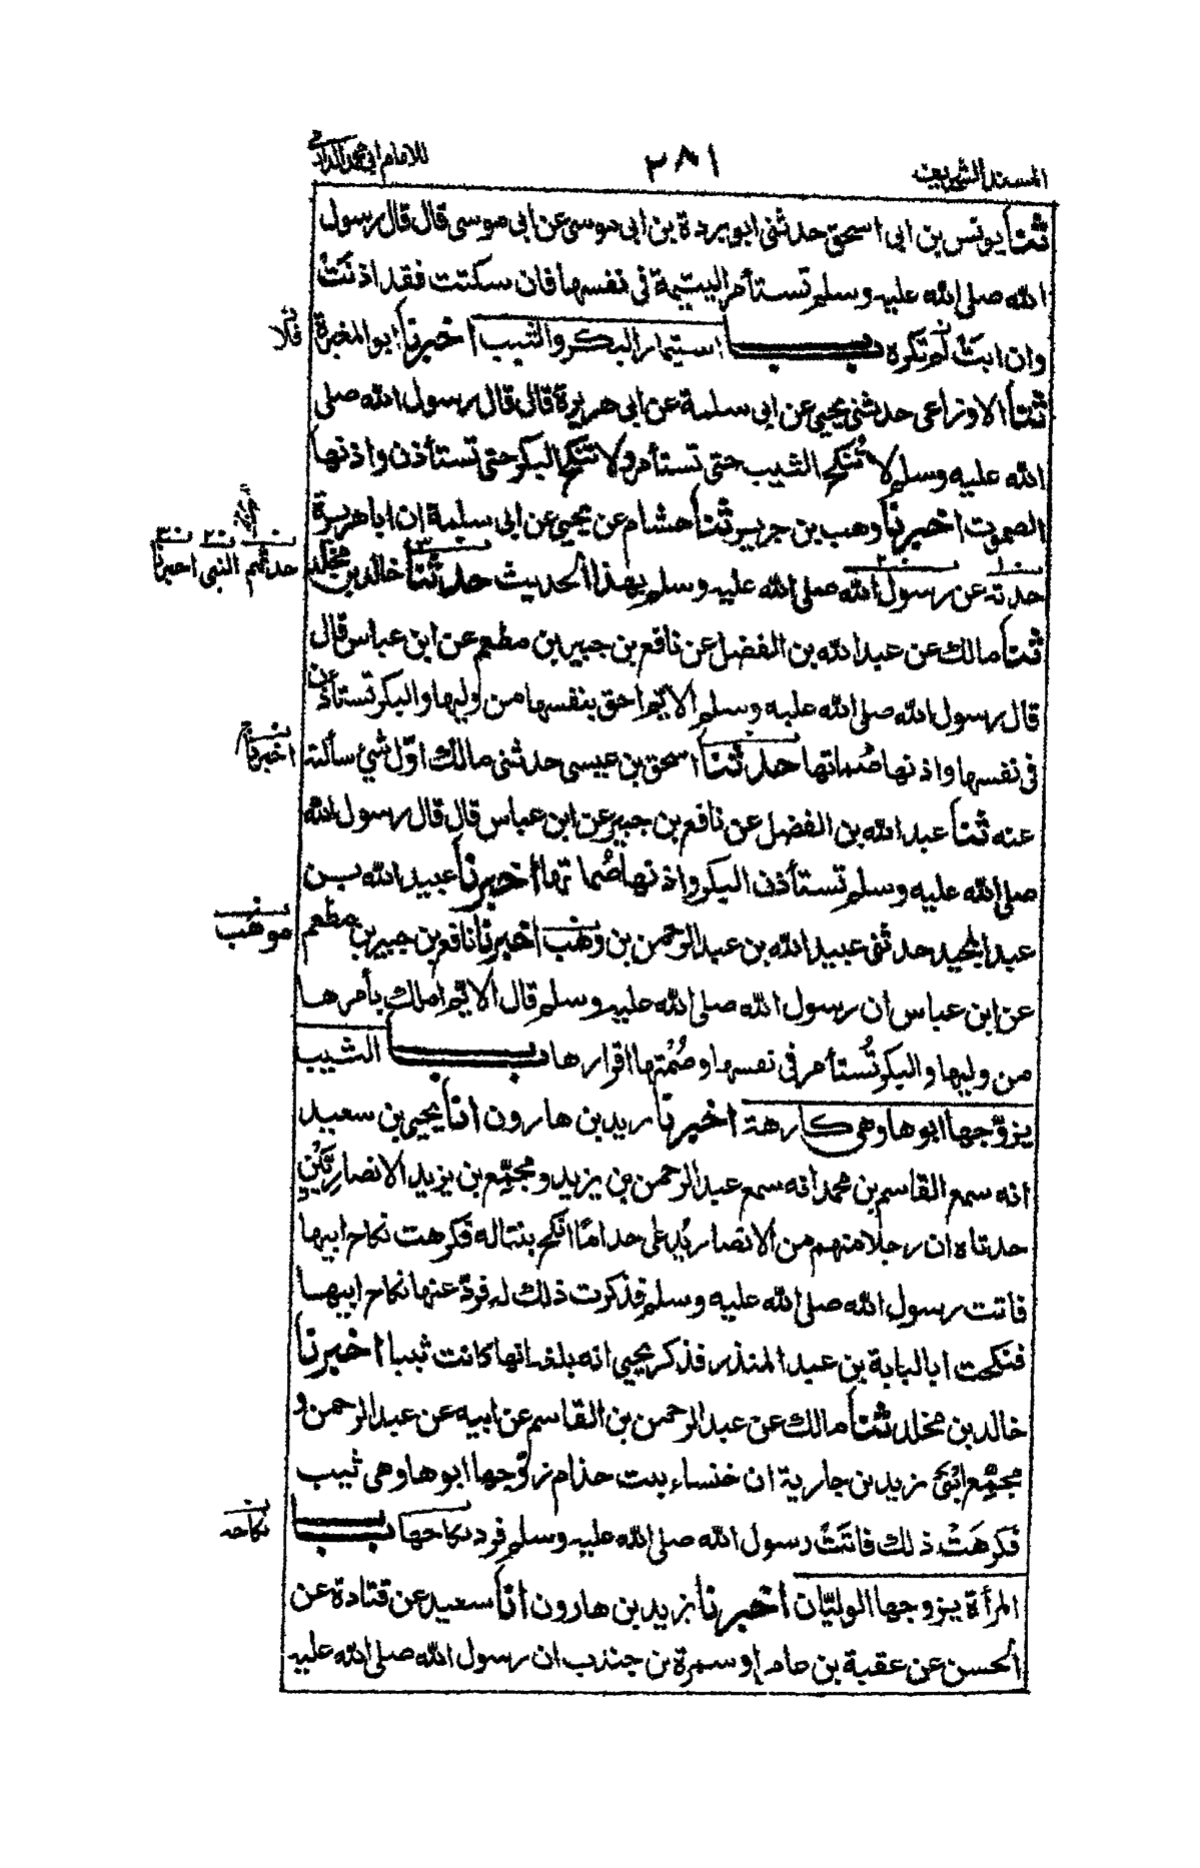 المسند الشريف
٢٨١
للامام ابى محمد الدارمى
ثنا يونس بن ابى اسحق حدثنى ابو بردة بن ابى موسى عن ابى موسى قال قال رسول
الله صلى الله عليه وسلم تستأمر اليتيمة فى نفسها فان سكتت فقد اذنَتْ
وان ابتْ لم تكره باب استيمار البكر والثيب اخبرنا ابو المغيرة
فلا
ثنا الاوزاعى حدثنى يحيى عن ابى سلمة عن ابى هريرة قال قال رسول الله صلى
الله عليه وسلم لا تُنكح الثيب حتى تستأمر ولا تنكح البكر حتى تستأذن واذنها
الصموت اخبرنا وهب بن جرير ثنا هشام عن يحيى عن ابى سلمة ان ابا هريرة
حدثه عن رسول الله صلى الله عليه وسلم بهذا الحديث حدثنا خالد بن مخلد
حدثهم النبى اخبرنا
ثنا مالك عن عبد الله بن الفضل عن نافع بن جبير بن مطعم عن ابن عباس قال
قال رسول الله صلى الله عليه وسلم الايّم احق بنفسها من وليها والبكر تستأذن
فى نفسها واذنها صُماتها حدثنا اسحق بن عيسى حدثنى مالك اوّل شئ سألته
اخبرنا
عنه ثنا عبد الله بن الفضل عن نافع بن جبير عن ابن عباس قال قال رسول الله
صلى الله عليه وسلم تستأذن البكر واذنها صُماتها اخبرنا عبيد الله بن
عبد المجيد حدثنى عبيد الله بن عبد الرحمن بن وهب اخبرنا نافع بن جبير بن مطعم
موهب
عن ابن عباس ان رسول الله صلى الله عليه وسلم قال الايّم املك بأمرها
من وليها والبكر تُستأمر فى نفسها وصُمْتها اقرارها باب الثيب
يزوّجها ابوها وهى كارهة اخبرنا يزيد بن هارون انا يحيى بن سعيد
انه سمع القاسم بن محمد انه سمع عبد الرحمن بن يزيد ومجمّع بن يزيد الانصاريَّيْنِ
حدثاه ان رجلا منهم من الانصار يُدعى خداما انكح بنتا له فكرهت نكاح ابيها
فاتت رسول الله صلى الله عليه وسلم فذكرت ذلك له فردّ عنها نكاح ابيها
فنكحت ابا لبابة بن عبد المنذر فذكر يحيى انه بلغه انها كانت ثيبا اخبرنا
خالد بن مخلد ثنا مالك عن عبد الرحمن بن القاسم عن ابيه عن عبد الرحمن و
مجمّع ابْنَىْ يزيد بن جارية ان خنساء بنت خذام زوّجها ابوها وهى ثيب
فكرهَتْ ذلك فاتَتْ رسول الله صلى الله عليه وسلم فرد نكاحها باب
نكاحه
المرأة يزوجها الوليّان اخبرنا يزيد بن هارون انا سعيد عن قتادة عن
الحسن عن عقبة بن عامر او سمرة بن جندب ان رسول الله صلى الله عليه